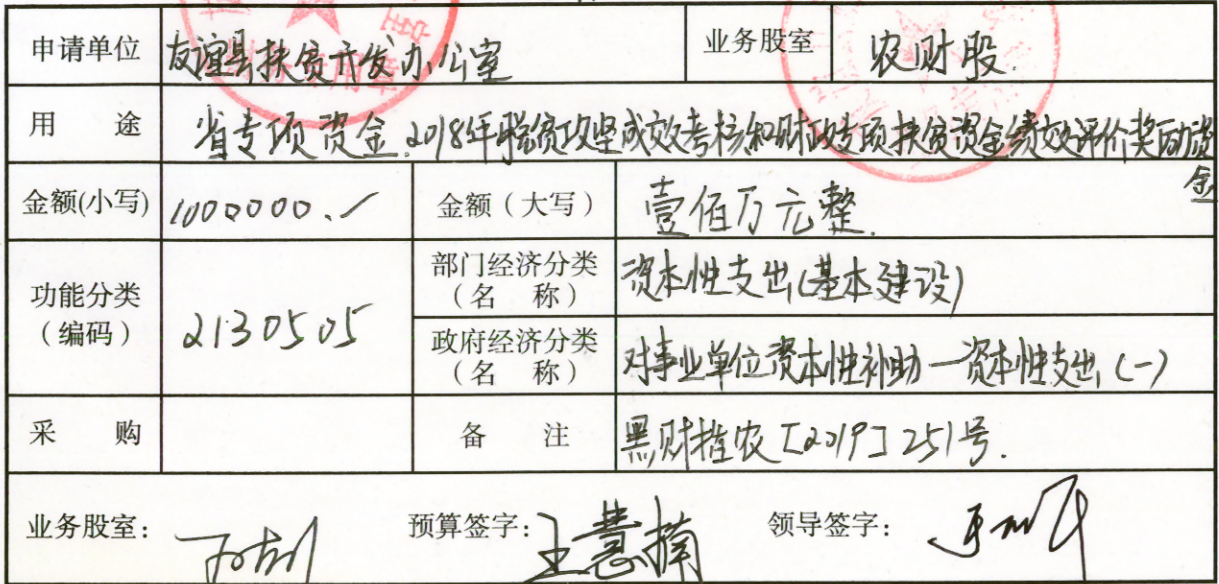 申请单位 友谊县扶贫开发办公室 业务股室 农财股.
用 途 省专项资金.2018年脱贫攻坚成效考核和财政专项扶贫资金绩效评价奖励资金
金额(小写) 1000000.- 金额(大写) 壹佰万元整.
功能分类(编码) 2130505 部门经济分类(名 称) 资本性支出(基本建设)
政府经济分类(名 称) 对事业单位资本性补助—资本性支出(一)
采 购 备 注 黑财指农[2019]251号.
业务股室: 预算签字:王慧楠 领导签字: